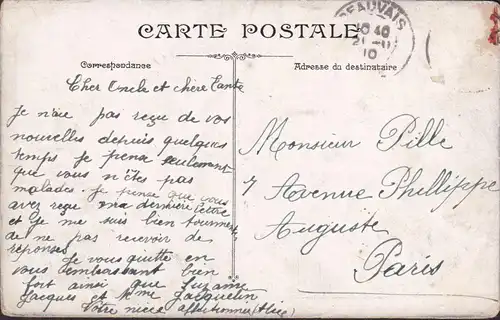 CARTE POSTALE
BEAUVAIS
10 40
21 -11
10
Correspondance
Adresse du destinataire
Cher Oncle et chère Tante
Je n'aie pas reçue de vos
nouvelles depuis quelques
temps je pense seulement
que vous n'êtes pas
malades. je pense que vous
avez reçue ma dernière lettre
et je me suis bien tourmenté
de ne pas recevoir de
réponses.
Je vous quitte en
vous embrassant bien
fort ainsi que Suzanne
Jacques et Mme Jacquelin
Votre nièce affectionnée (Alice)
Monsieur Pille
7 Avenue Phillippe
Auguste
Paris